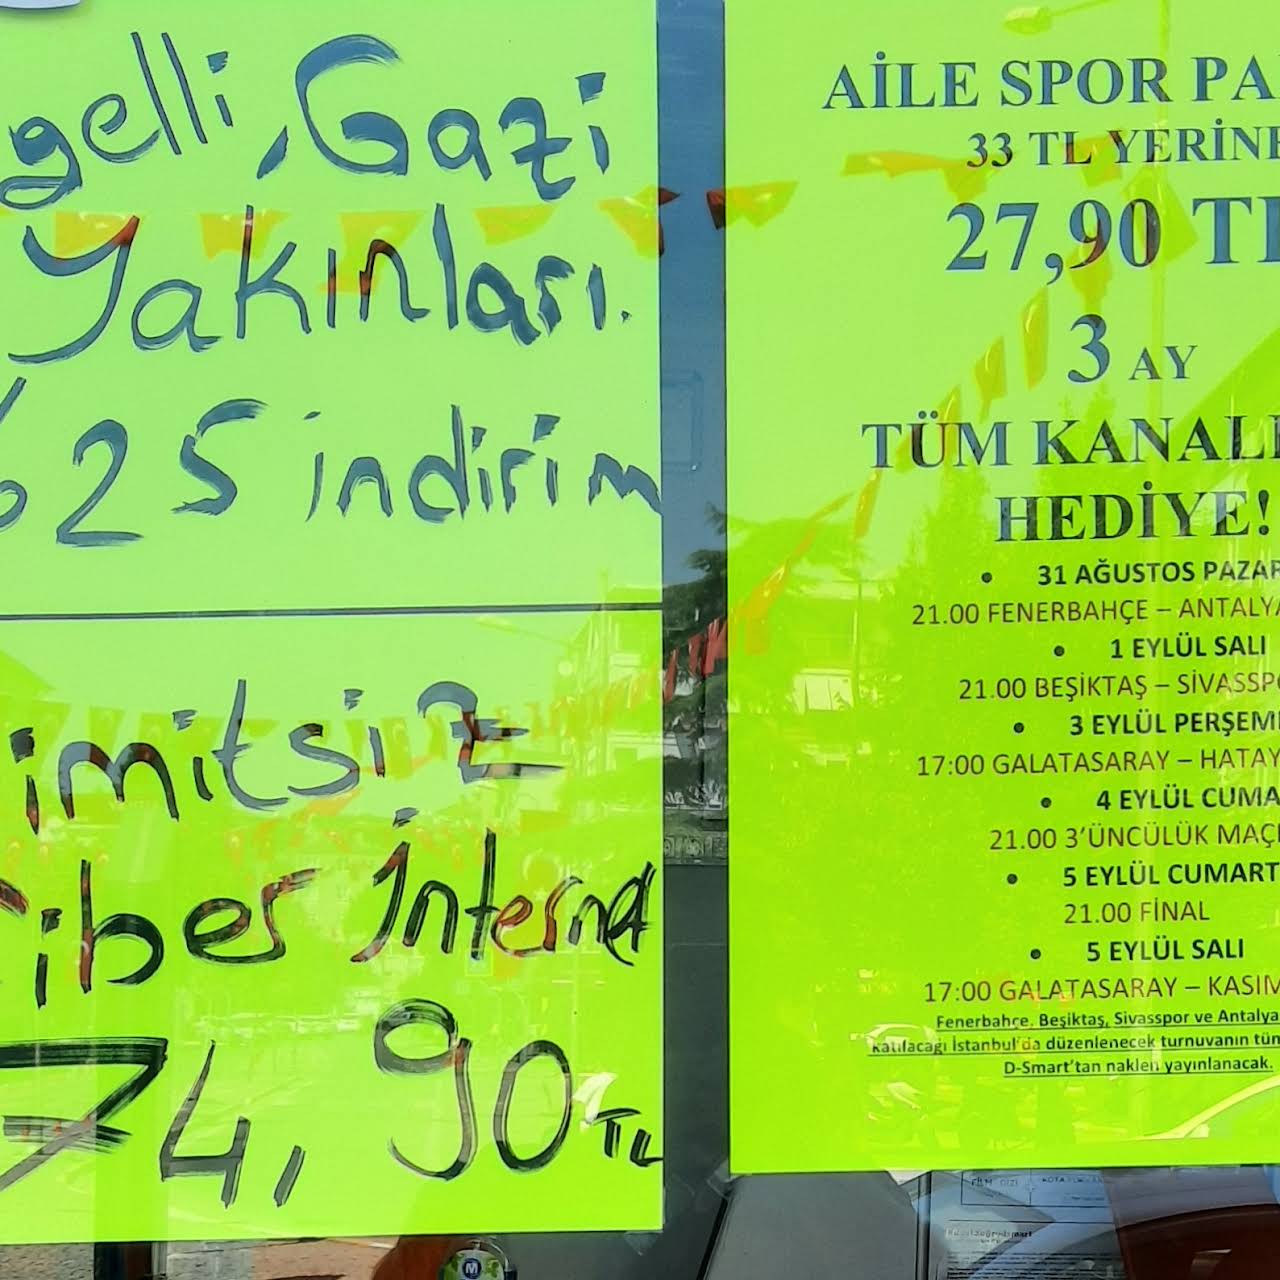 gelli, Gazi
Yakınları.
%25 indirim
imitsiz
iber İnternet
74,90 TL
AİLE SPOR PA
33 TL YERİNE
27,90 TL
3 AY
TÜM KANALL
HEDİYE!
• 31 AĞUSTOS PAZAR
21.00 FENERBAHÇE – ANTALYA
• 1 EYLÜL SALI
21.00 BEŞİKTAŞ – SİVASSPO
• 3 EYLÜL PERŞEM
17:00 GALATASARAY – HATAY
• 4 EYLÜL CUMA
21.00 3'ÜNCÜLÜK MAÇI
• 5 EYLÜL CUMART
21.00 FİNAL
• 5 EYLÜL SALI
17:00 GALATASARAY – KASIM
Fenerbahçe, Beşiktaş, Sivasspor ve Antalya
katılacağı İstanbul'da düzenlenecek turnuvanın tüm
D-Smart'tan naklen yayınlanacak.
FİLM DİZİ